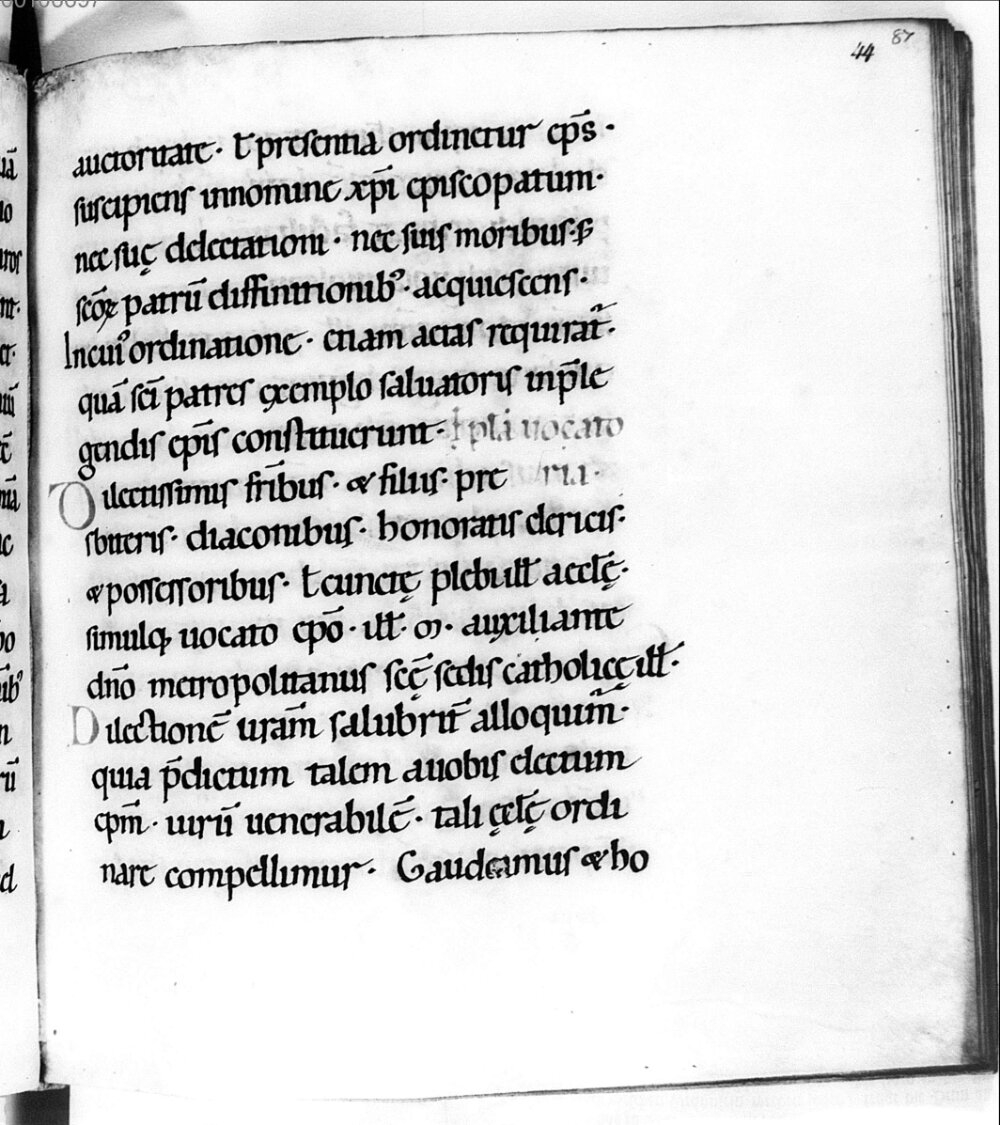 44 87
auctoritate· ł presentia ordinetur ep̄s·
suscipiens innomine xp̄i episcopatum·
nec suę delectationi· nec suis moribus· s;
sc̄oꝝ patrū diffinitionib᾽· acquiescens·
Incui᾽ ordinatione· etiam aetas requirat̄·
quā sc̄i patres exemplo saluatoris inp̄le
gendis ep̄is constituerunt· uocato
Dilectissimis fr̄ibus· & filiis· pre
sbiteris· diaconibus· honoratis clericis·
& possessoribus· ł cunctę plebi ill̄ aeccl̄ę·
simulq; uocato ep̄o· ill̄· auxiliante
dn̄o metropolitanus sc̄ę sedis catholicę ill̄·
Dilectionē ur̄am salubrit̄ alloquim̄·
quia p̄dictum talem auobis electum
ep̄m· uirū uenerabilē· tali ęccl̄ę ordi
nare compellimur· Gaudeamus & bo